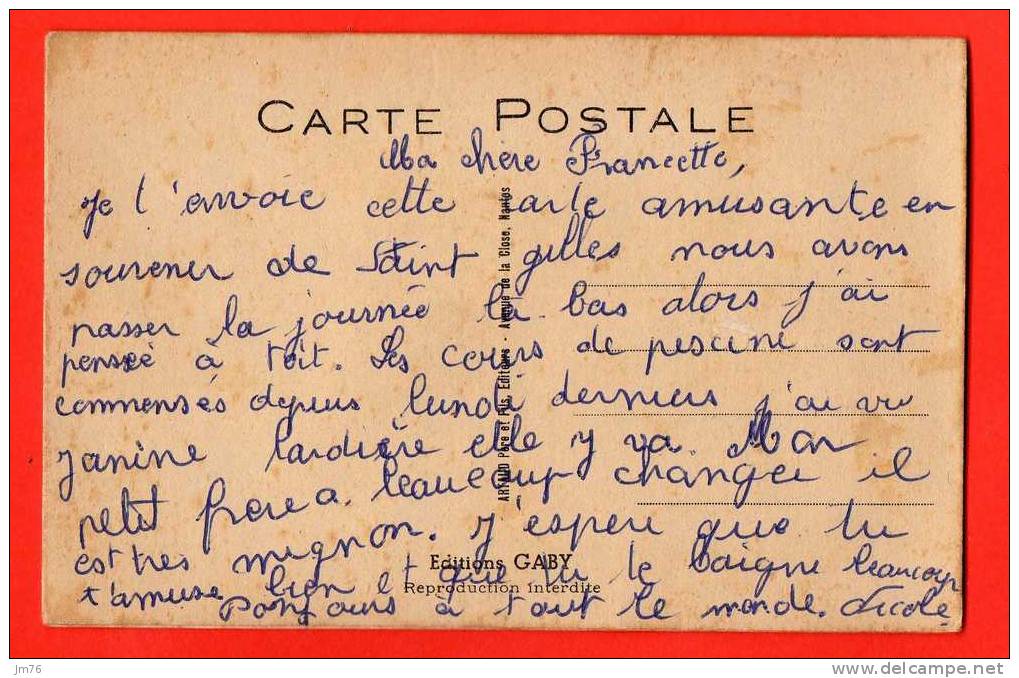 CARTE POSTALE
Ma chère Francette,
Je t'envoie cette carte amusante en
souvener de Saint gilles nous avons
passer la journée la bas alors j'ai
pensée à toit. Les cours de pescine sont
commensés depuis lundi derniers j'ai vu
Janine lardière elle y va. Mon
petit frere a beaucoup changer il
est tres mignon. J'espere que tu
t'amuse bien et que tu te baigne beaucoup
Bonjours à tout le monde. Nicole
ARTAUD Père et Fils, Editeurs - Avenue de la Close, Nantes
Editions GABY
Reproduction interdite
jm76
www.delcampe.net